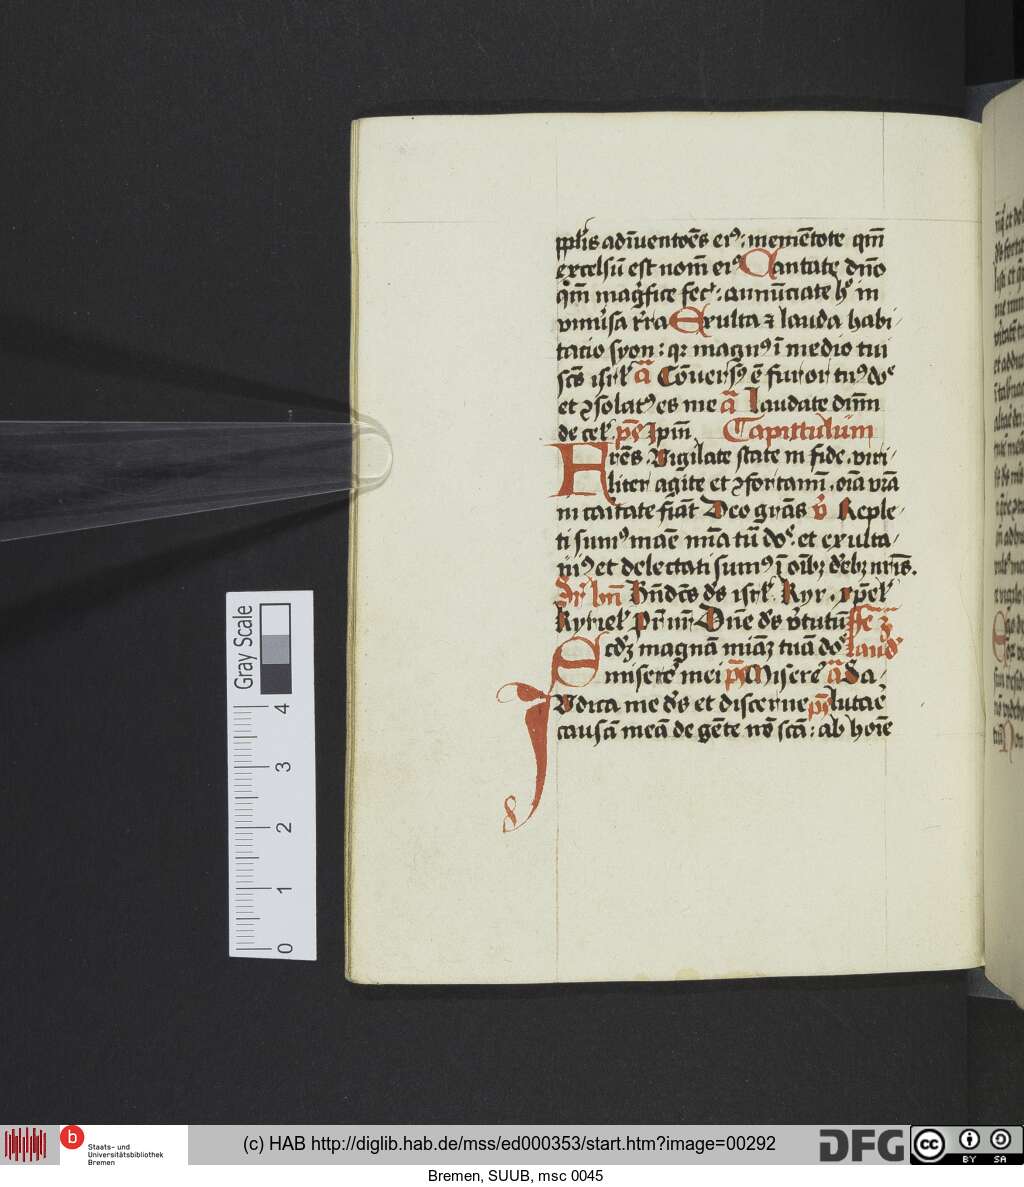 pplis adīuentoēs eiꝰ : memētote qm̄
excelsū est nom̄ eiꝰ Cantate dn̄o
qm̄ magn̄fice fecᵗ : annūciate hͦ in
vniu̓sa tr̓ra Exulta ⁊ lauda habi/
tatio syon : qꝛ magnꝰ ī medio tui
scūs isrł añ Cōuersꝰ ē furor tuꝰ doᵉ
et ꝯsolatꝰ es me añ laudate dnm̄
de cel̓ ps̄ Ipm̄ Capittulum
Frēs Vigilate state in fide . viri/
liter agite et ꝯfortamī . oīa vr̄a
in caritate fiāt Deo grās v̓ Reple/
ti sumꝰ mae mīa tū doͤ . et exulta/
uiꝰ et delectati sumꝰ ī oībꝫ dēbꝫ nrīs .
bn̄ Bn̄dcūs ds̄ isrł . Kyr . xpēł
Kyrieł pr̄ nr̄ Dn̄e ds̄ v̓tutū
Scd̓ꝫ magnā miāꝫ tuā doͤ laud
misere mei ps̄ Miserē añ Sa/
Iudica me ds̄ et discerne ps̄ lutarē
causā meā de gēte nō scā : ab hoīe
Gray Scale
4
3
2
1
0
b
Staats- und
Universitätsbibliothek
Bremen
(c) HAB http://diglib.hab.de/mss/ed000353/start.htm?image=00292
DFG
cc
BY SA
Bremen, SUUB, msc 0045